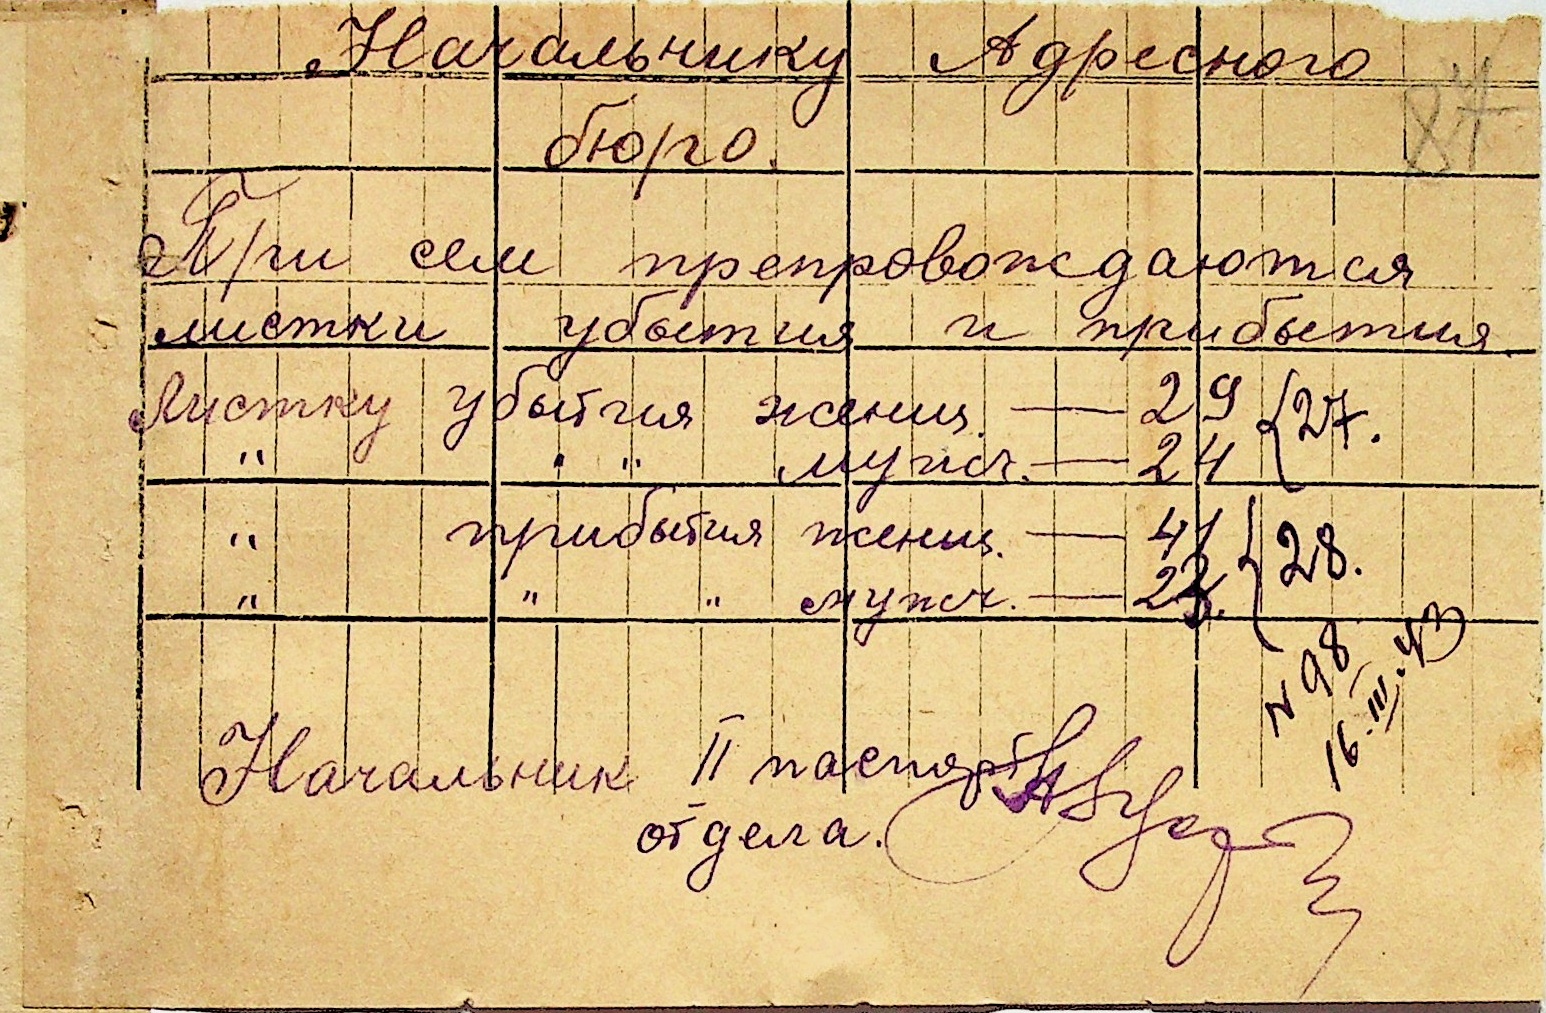 Начальнику Адресного
87
бюро.
При сем препровождаются
листки убытия и прибытия.
Листку убытия женщ. — 29 {27.
" " " мужч. — 24
" прибытия женщ. — 41 {28.
" " " мужч. —
N 98
16.III.43
Начальник II паспорт
отдела.